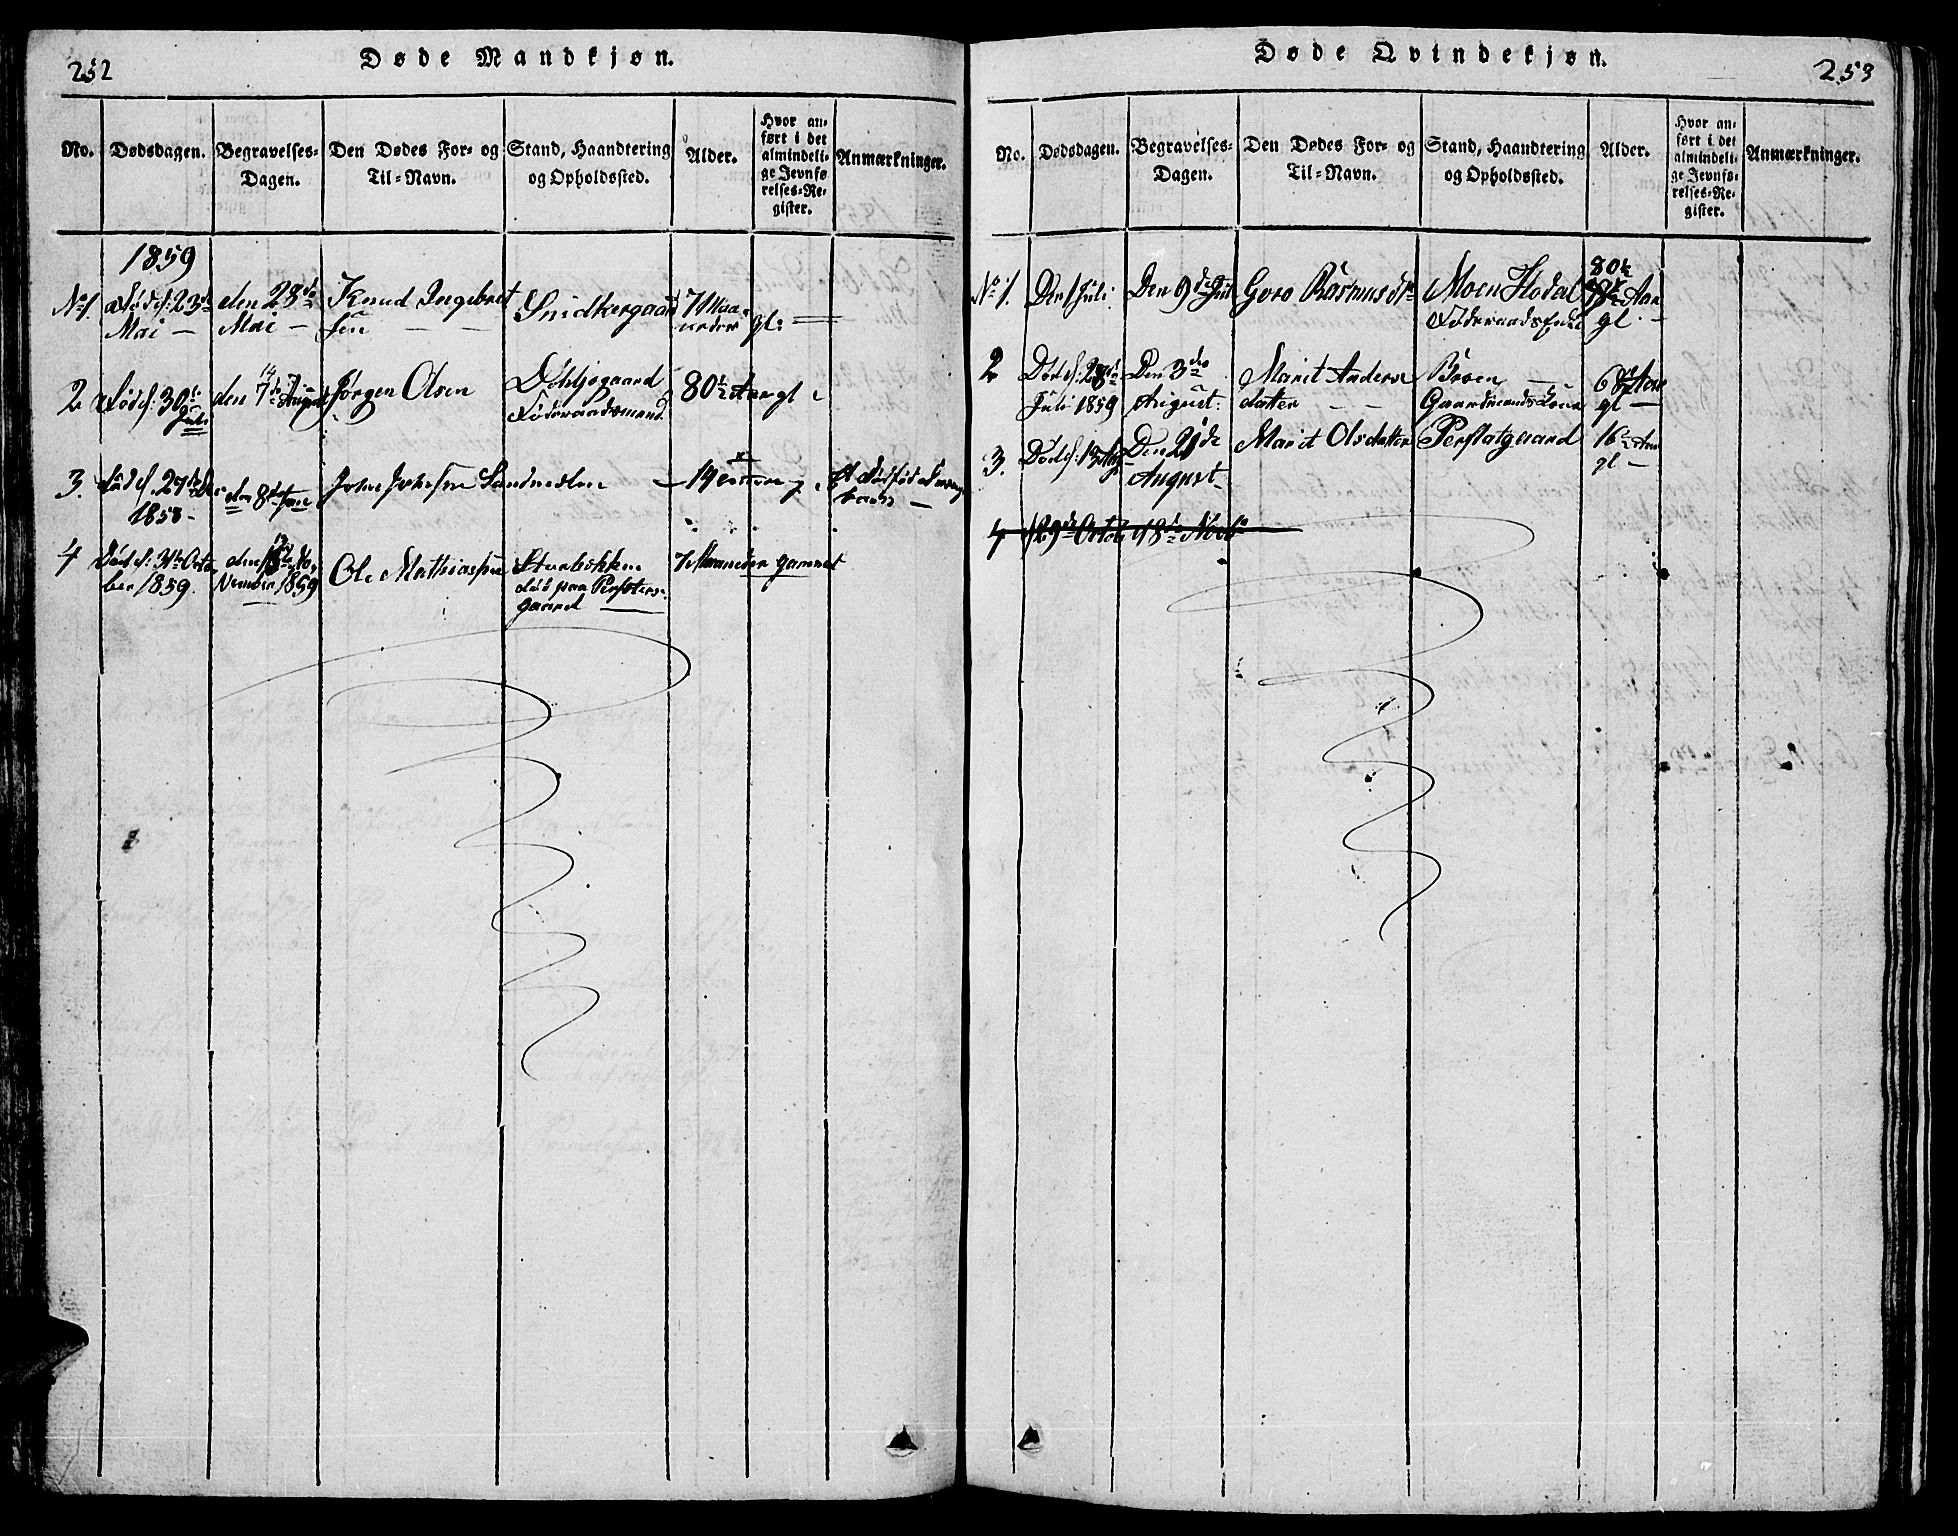 252
Døde Mandkjøn.
No.
Dødsdagen.
Begravelses-
Dagen.
Den Dødes For- og
Til-Navn.
Stand, Haandtering
og Opholdssted.
Alder.
Hvor an-
ført i det
almindeli-
ge Jevnfø
relses-Re-
gister.
Anmærkninger.
1859
No 1. Død d: 23de
Mai —
den 28de
Mai —
Knud Ingebret
sen — —
Snidkergaard
7 Maa-
neder gl:
2. Død d: 30te
Juli
den 7de August
Jørgen Olsen
Føderaadsmand
80 Aar gl
3. Død d. 27de
1858 -
den 8de Jan
John Johnsen
4 Død d: 31te Octo
ber 1859.
den No-
vember 1859
Ole Mathiassen
død paa
gaard
7 Maaneder gammel
Døde Qvindekjøn.
253
No.
Dødsdagen.
Begravelses-
Dagen.
Den Dødes For- og
Til-Navn.
Stand, Haandtering
og Opholdssted.
Alder.
Hvor an-
ført i det
almindeli-
ge Jevnfø-
relses-Re-
gister.
Anmærkninger.
No 1. Den 1 Juli
Den 9de Juli
Goro Rasmusdr
Moen Flodal
Føderaadsenke
80
Aar
gl. —
2 Død d. 28de
Juli 1859
Den 3die
August.
Marit Anders
datter — —
Broen —
Gaardmands Kone
Aar
gl —
3. Død d: 13 Aug
Den 21de
August
Marit Olsdatter
16 Aar
gl —
4 29de Octob 18de Novb